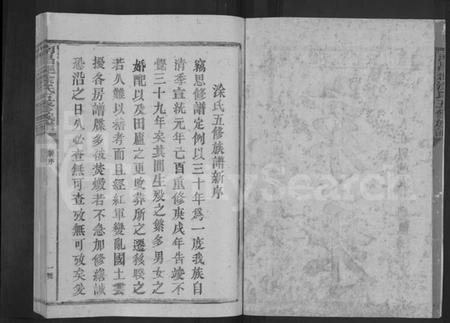 涂氏五修族譜新序
竊思修譜定例以三十年爲一度我族自
清季宣統元年己酉重修庚戌年告竣不
覺三十九年矣其間生歿之繁多男女之
婚配以及田廬之更改葬所之遷移暌之
若久難以稽考而且經紅軍變亂國土雲
擾各房譜牒多被焚燬若不急加修緝誠
恐沿之日久必查無可查攷無可攷矣爰
新序